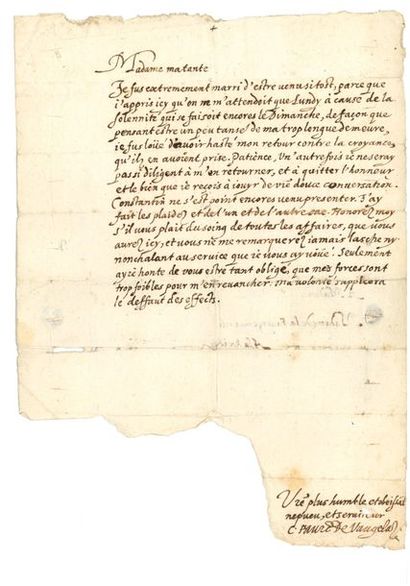 Madame ma tante
Je fus extremement marri d'estre venu si tost, parce que
i'appris icy qu'on ne m'attendoit que Lundy à cause de la
solennité qui se faisoit encores le Dimanche, de façon que
pensant estre un peu tansé de ma trop longue demeure,
ie fus loüé d'avoir hasté mon retour contre la croyance
qu'ilz en avoient prise. Patience, Un'autre fois ie ne seray
pas si diligent à m'en retourner, et à quitter l'honneur
et le bien que ie reçois à iouir de v're douce conversation.
Constantin ne s'est point encores venu presenter. J'ay
fait les plaidez et de l'un et de l'autre Honorez moy
s'il vous plait du soing de toutes les affaires, que vous
aurez icy, et vous ne me remarquerez jamais lasche ny
nonchalant au service que ie vous ay voüé. Seulement
ay ie honte de vous estre tant obligé, que mes forces sont
trop foibles pour m'en revancher. ma volonté suppleera
le deffaut des effects.
V're plus humble et obeissant
nepveu, et serviteur
C. FAVRE De Vaugelas